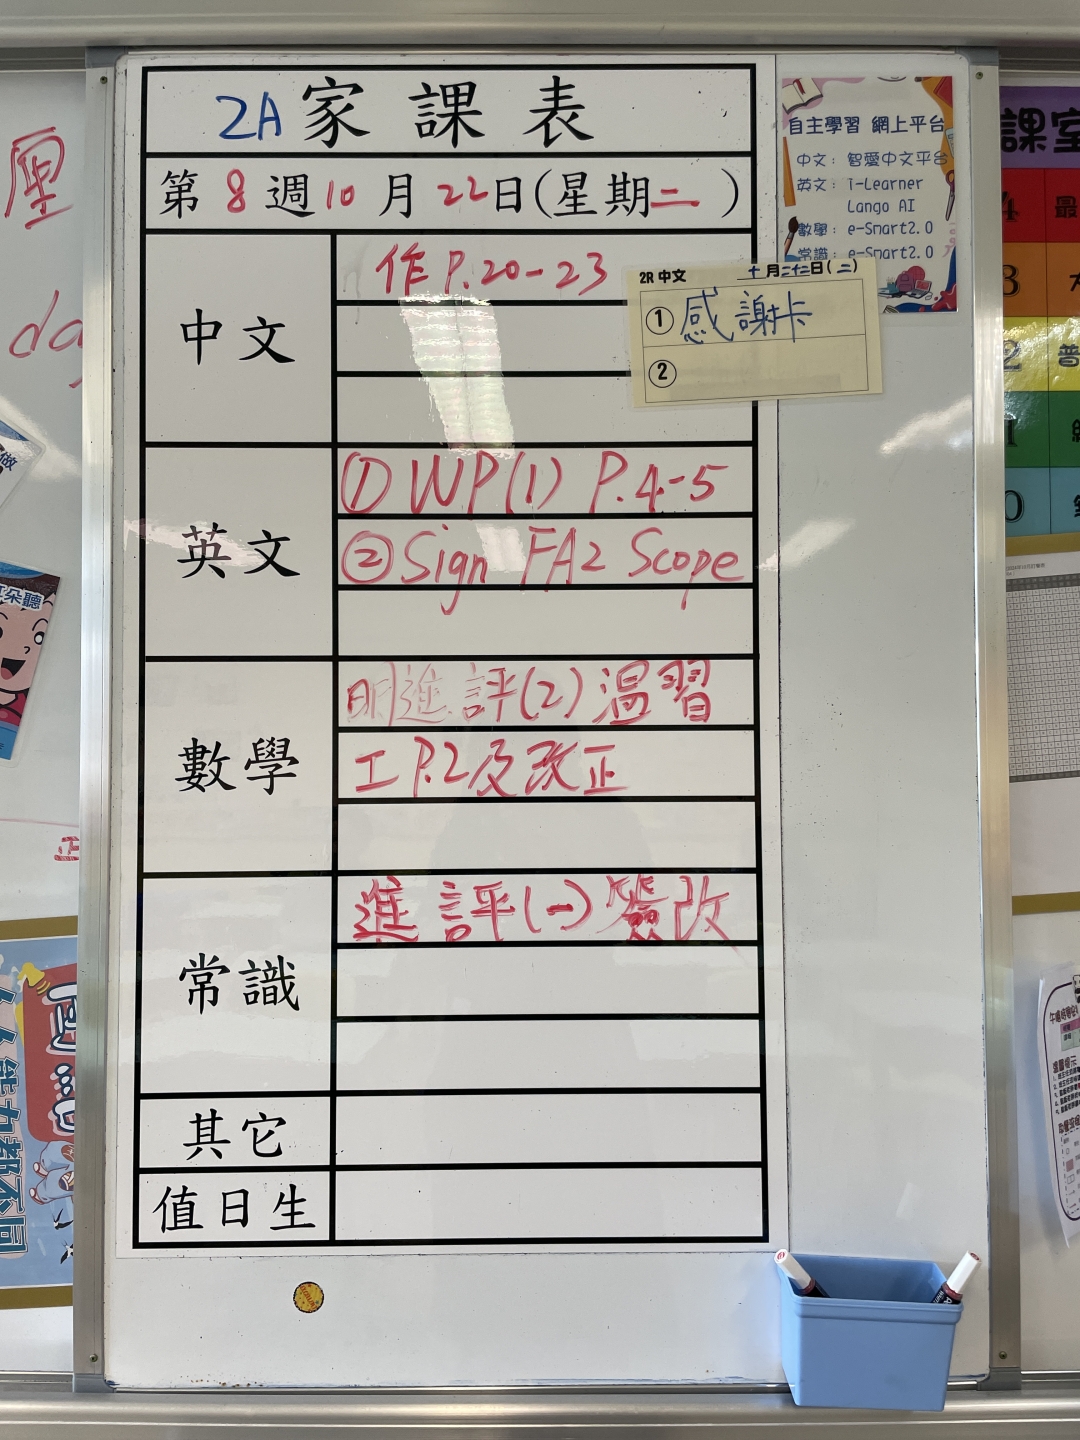 2A家課表
第8週10月22日(星期二)
中文
作P.20-23
2R 中文 十月二十二日(二)
①感謝卡
②
英文
①WP(1) P.4-5
②Sign FA2 Scope
數學
明進評(2)溫習
工P.2及改正
常識
進評(一)簽改
其它
值日生
自主學習 網上平台
中文：智愛中文平台
英文：i-Learner
Lango AI
數學：e-Smart2.0
常識：e-Smart2.0
課室
4 最
3
2 普
1
0
正
人人能力都不同